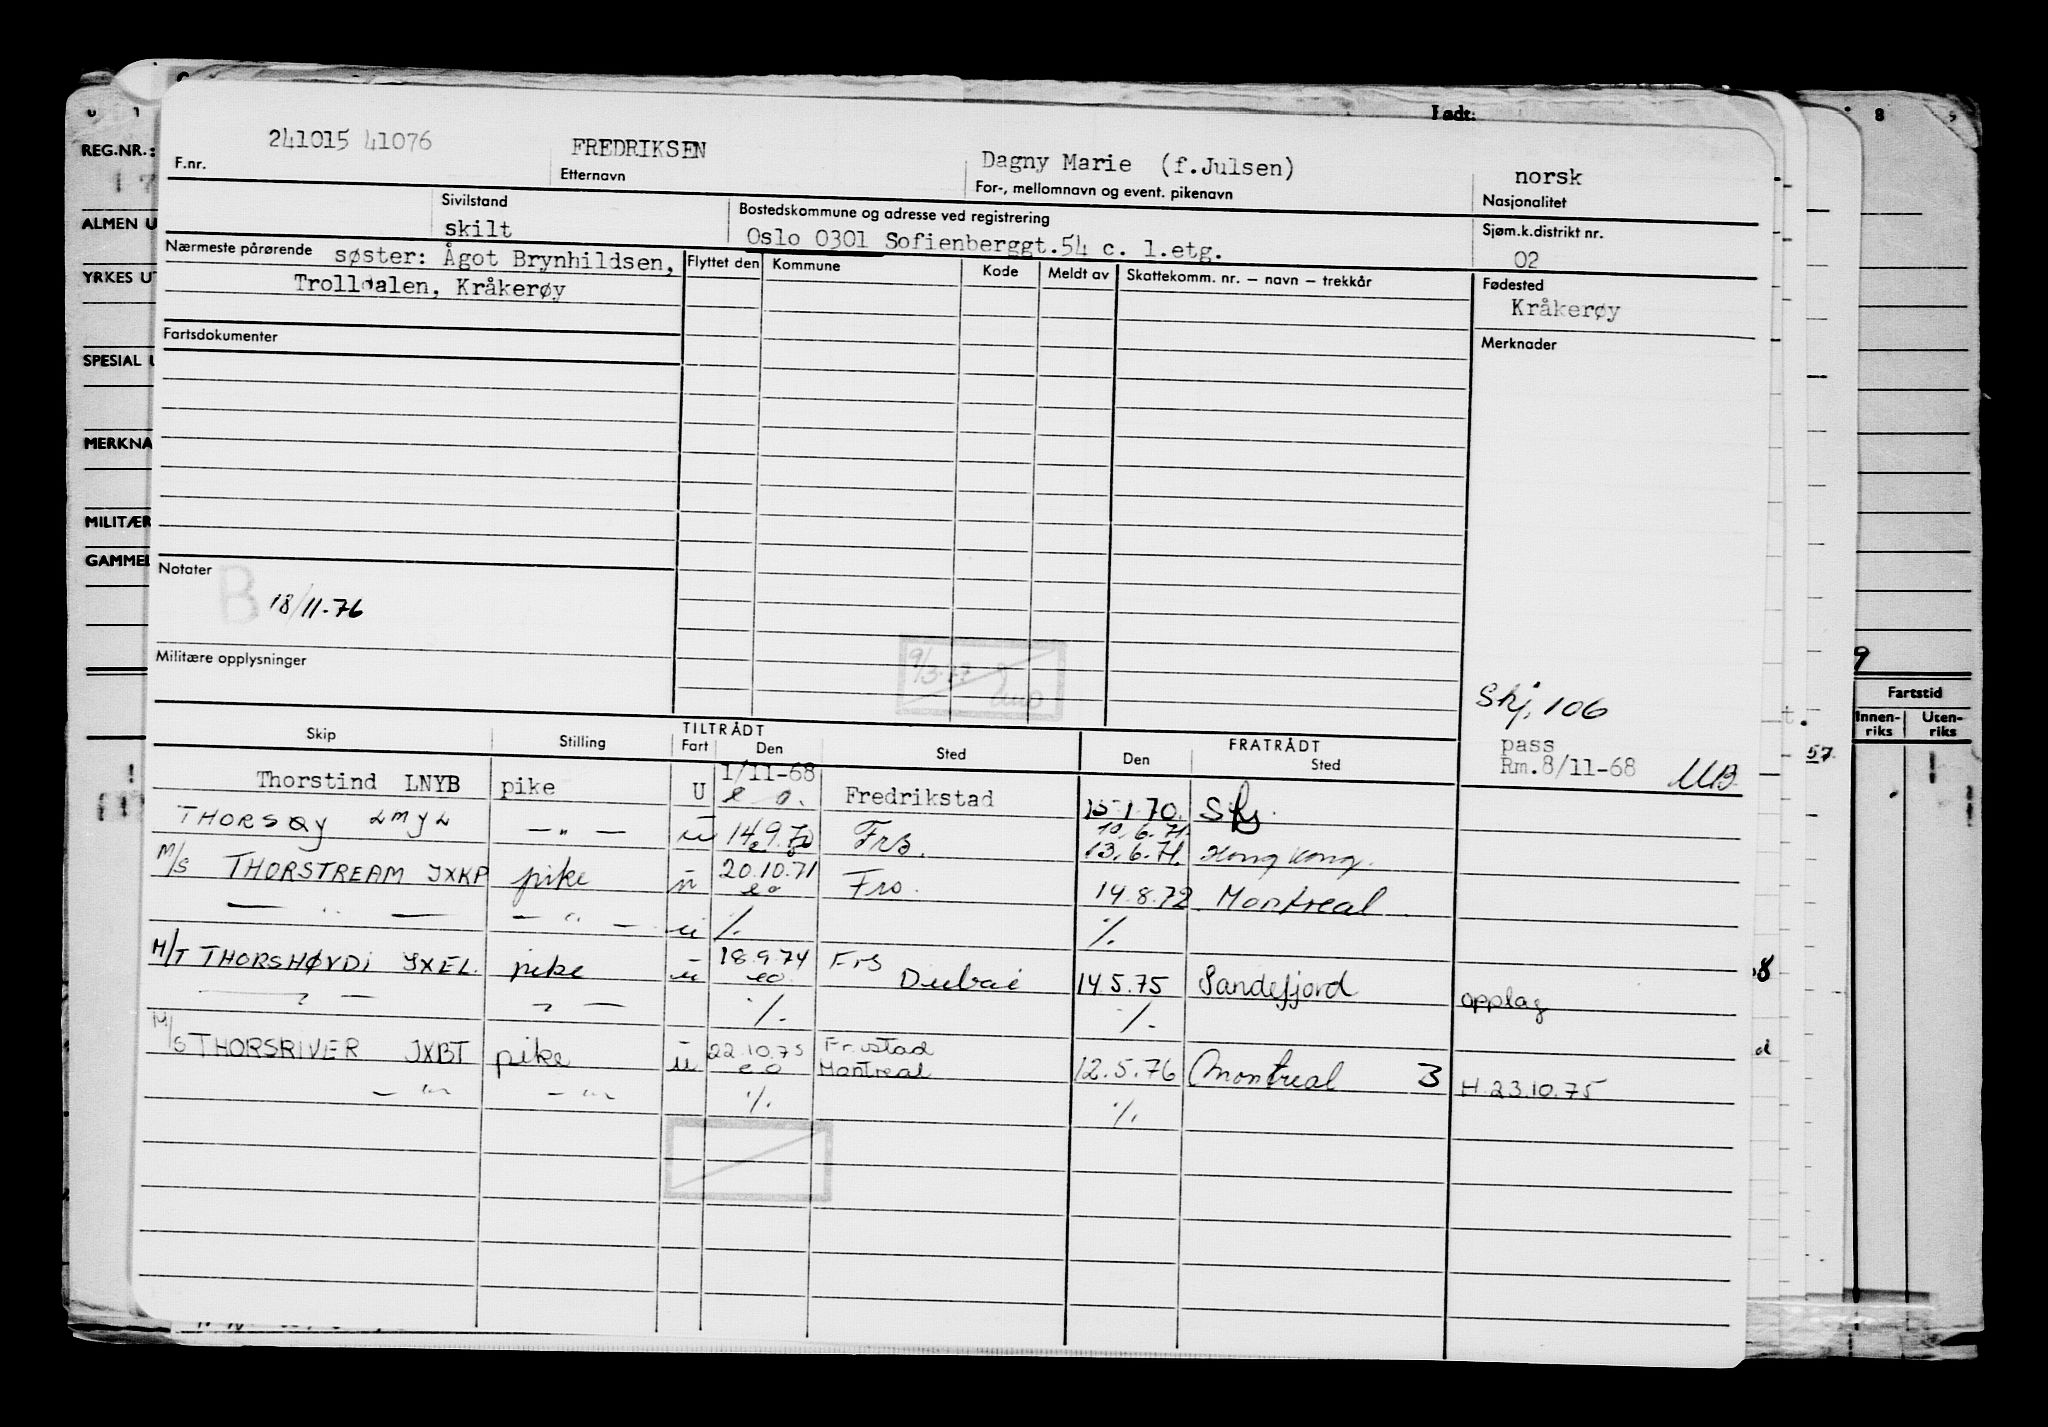 Født:
241015 41076 FREDRIKSEN Dagny Marie (f.Julsen) norsk
F.nr. Etternavn For-, mellomnavn og event. pikenavn Nasjonalitet
Sivilstand Bostedskommune og adresse ved registrering Sjøm.k.distrikt nr.
skilt Oslo 0301 Sofienberggt.54 c. 1.etg. 02
Nærmeste pårørende søster: Ågot Brynhildsen, Flyttet den Kommune Kode Meldt av Skattekomm. nr. – navn – trekkår Fødested
Trolldalen, Kråkerøy Kråkerøy
Fartsdokumenter Merknader
Notater
B 18/11-76
Militære opplysninger
9/3-77
Skj. 106
pass
Rm.8/11-68 MB.
TILTRÅDT FRATRÅDT
Skip Stilling Fart Den Sted Den Sted
Thorstind LNYB pike U 1/11-68 Fredrikstad 15-1.70.
e o.
THORSØY LMYL — " — u 14.9.70 Frs. 10.6.71
13.6.71. Hong Kong.
M/S THORSTREAM JXKP pike u 20.10.71 Fro. 14.8.72 Montreal
eo
— " — — " — u ./. ./.
M/T THORSHØVDI JXEL. pike u 18.9.74 Frs Dubai 14.5.75 Sandefjord opplag
eo
— " — " — ./. ./.
M/S THORSRIVER JXBT pike u 22.10.75 Fr.stad
eo Montreal 12.5.76 Montreal 3 H.23.10.75
— " — — " — ./. ./.
REG.NR.:
ALMEN U
YRKES UT
SPESIAL U
MERKNA
MILITÆR
GAMMEL
8
9
Fartstid
Innen-
riks
Uten-
riks
57